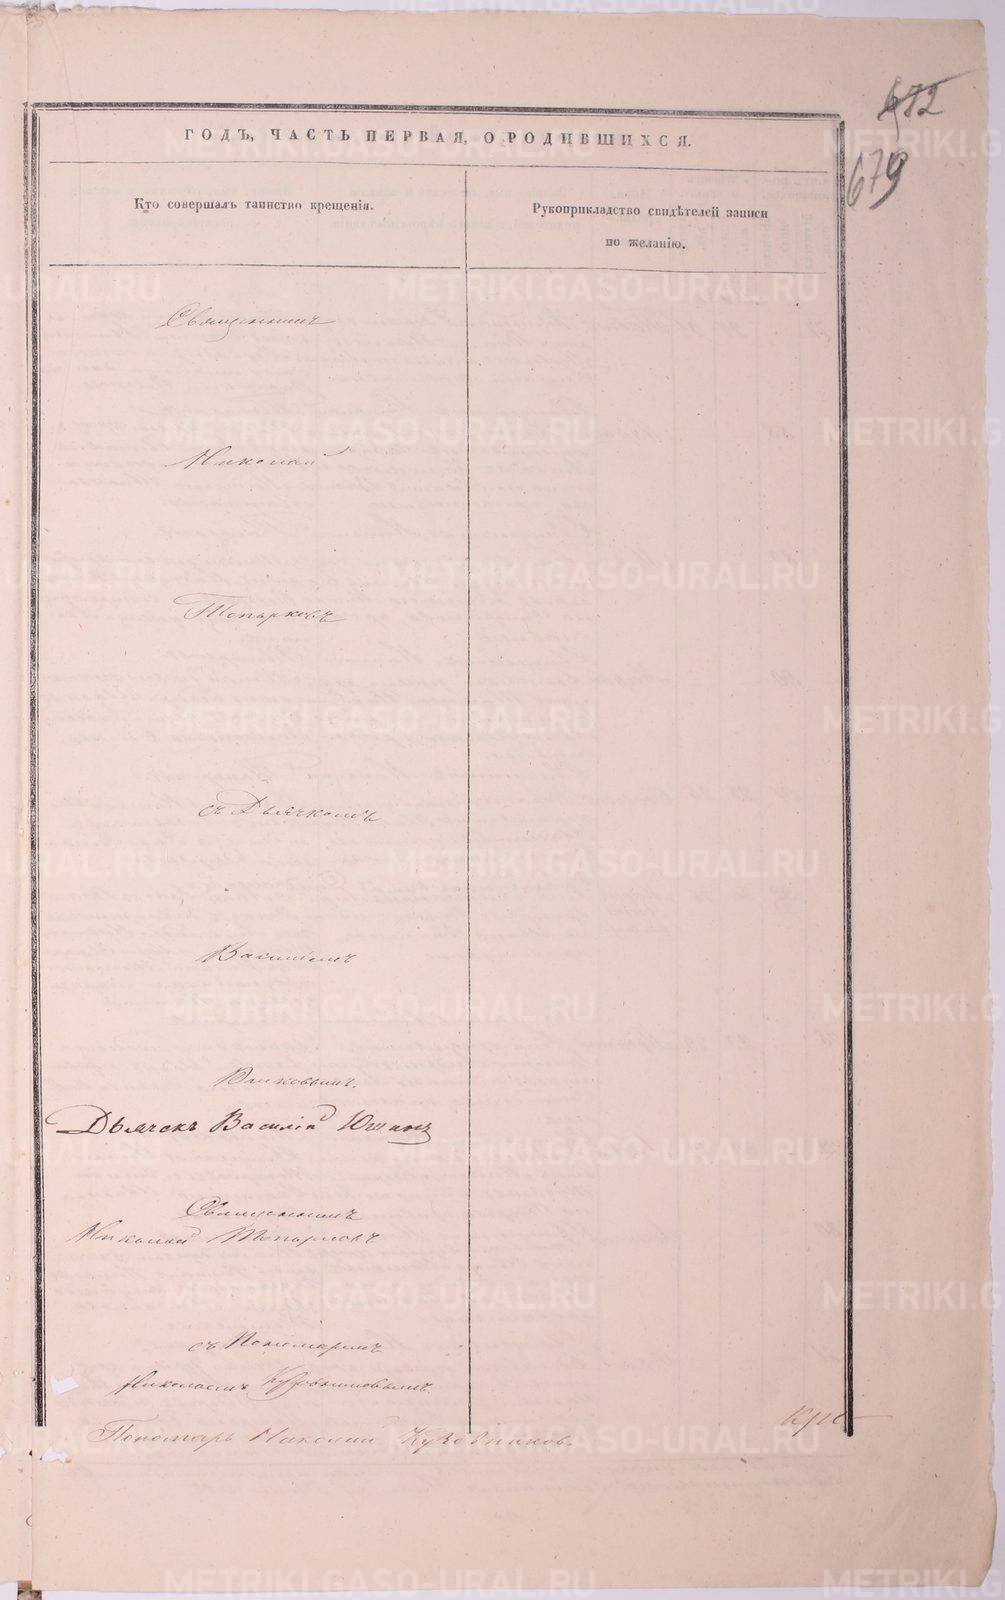 672
679
ГОДЪ, ЧАСТЬ ПЕРВАЯ, О РОДИВШИХСЯ.
Кто совершалъ таинство крещенія.
Рукоприкладство свидѣтелей записи
по желанію.
Священникъ
Николай
Топорковъ
съ Дьячкомъ
Василіемъ
Юшковымъ.
Дьячекъ Василій
Священникъ
Николай Топорковъ
съ Пономаремъ
Николаемъ Кузовниковымъ.
Пономарь Николай Кузовниковъ.
METRIKI.GASO-URAL.RU